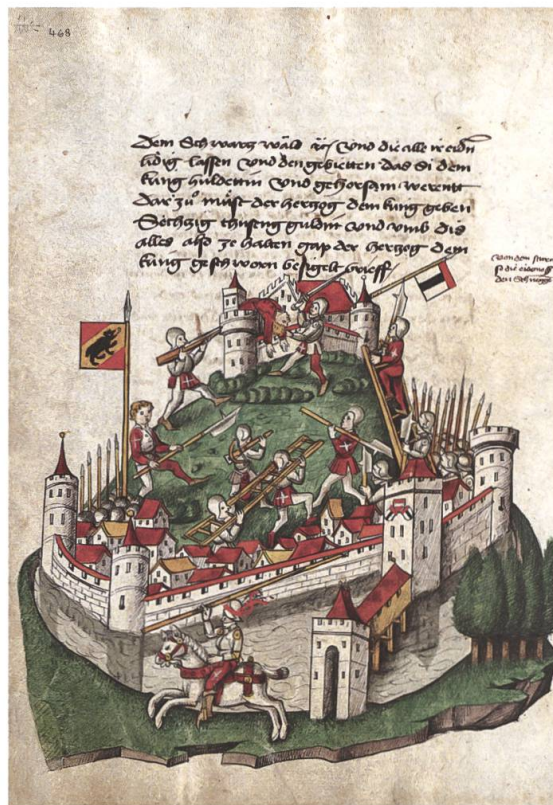 468
Dem Schwartz wäld etc vnd die alle ir eiden
lidig lassen vnd den gebietten das si dem
küng huldettin vnd gehorsam werentt
Dar zů můst der hertzog dem küng geben
Sechtzig thuseng guldin vnd vmb dis
alles also ze halten gap der hertzog dem
küng geschworn besigelt brieff
Von dem sturm
so die eidgnossen